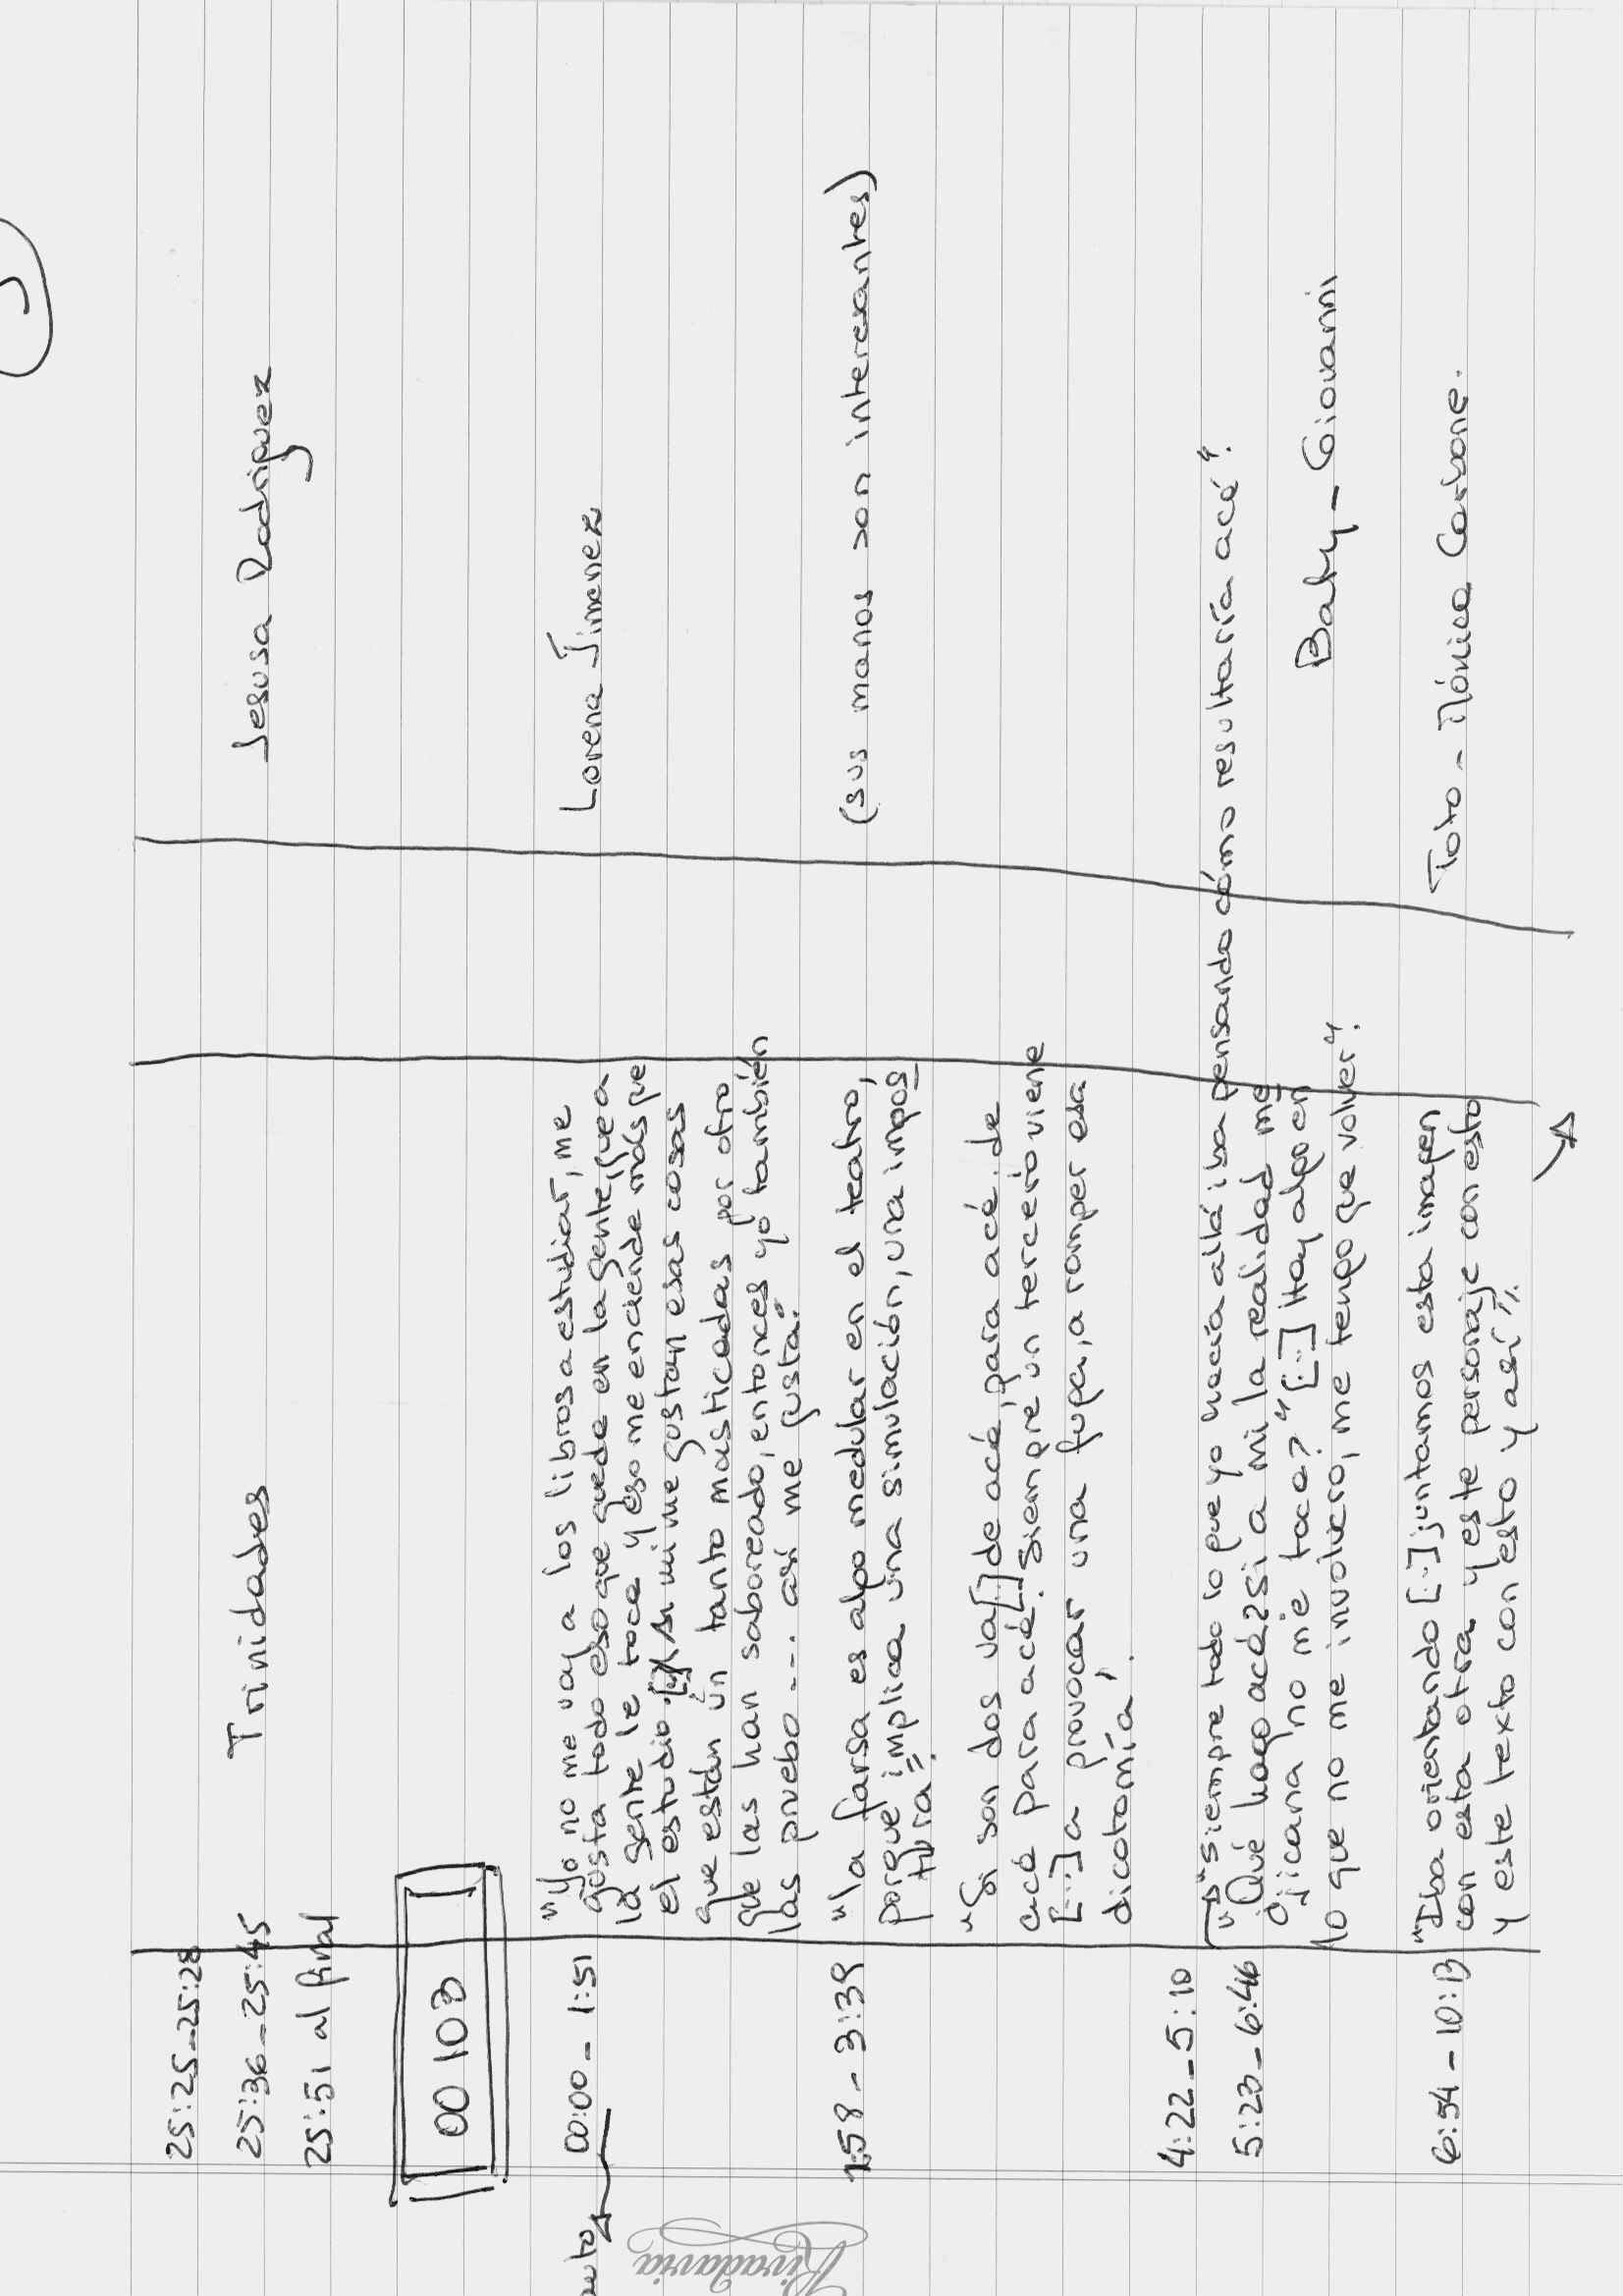 25:25-25:28
25:36-25:45 Trinidades Jesusa Rodriguez
25:51 al final
00103
00:00-1:51 "Yo no me voy a los libros a estudiar, me Lorena Jimenez
gusta todo eso que quede en la gente, que a
la gente le toca y eso me enciende más que
el estudio [...] A mi me gustan esas cosas
que están un tanto masticadas por otro
que las han saboreado, entonces yo también
las pruebo --- así me gusta".
1:58-3:39 "la farsa es algo medular en el teatro, (sus manos son interesantes)
porque implica una simulación, una impos
tura".
"Si son dos va[...]de acá, para acá, de
acá para acá[...]siempre un tercero viene
[...] a provocar una fuga, a romper esa
dicotomía".
4:22-5:10 "siempre todo lo que yo hacía allá iba pensando cómo resultaría acá".
5:23-6:46 "Qué hago acá? Si a mi la realidad me
jicana no me toca?" [...] Hay algo en Baty-Giovanni
lo que no me involucro, me tengo que volver".
6:54-10:13 "Iba orientando [...] juntamos esta imagen Toto-Mónica Carbone.
con esta otra y este personaje con esto
y este texto con esto y así".
Rivadavia